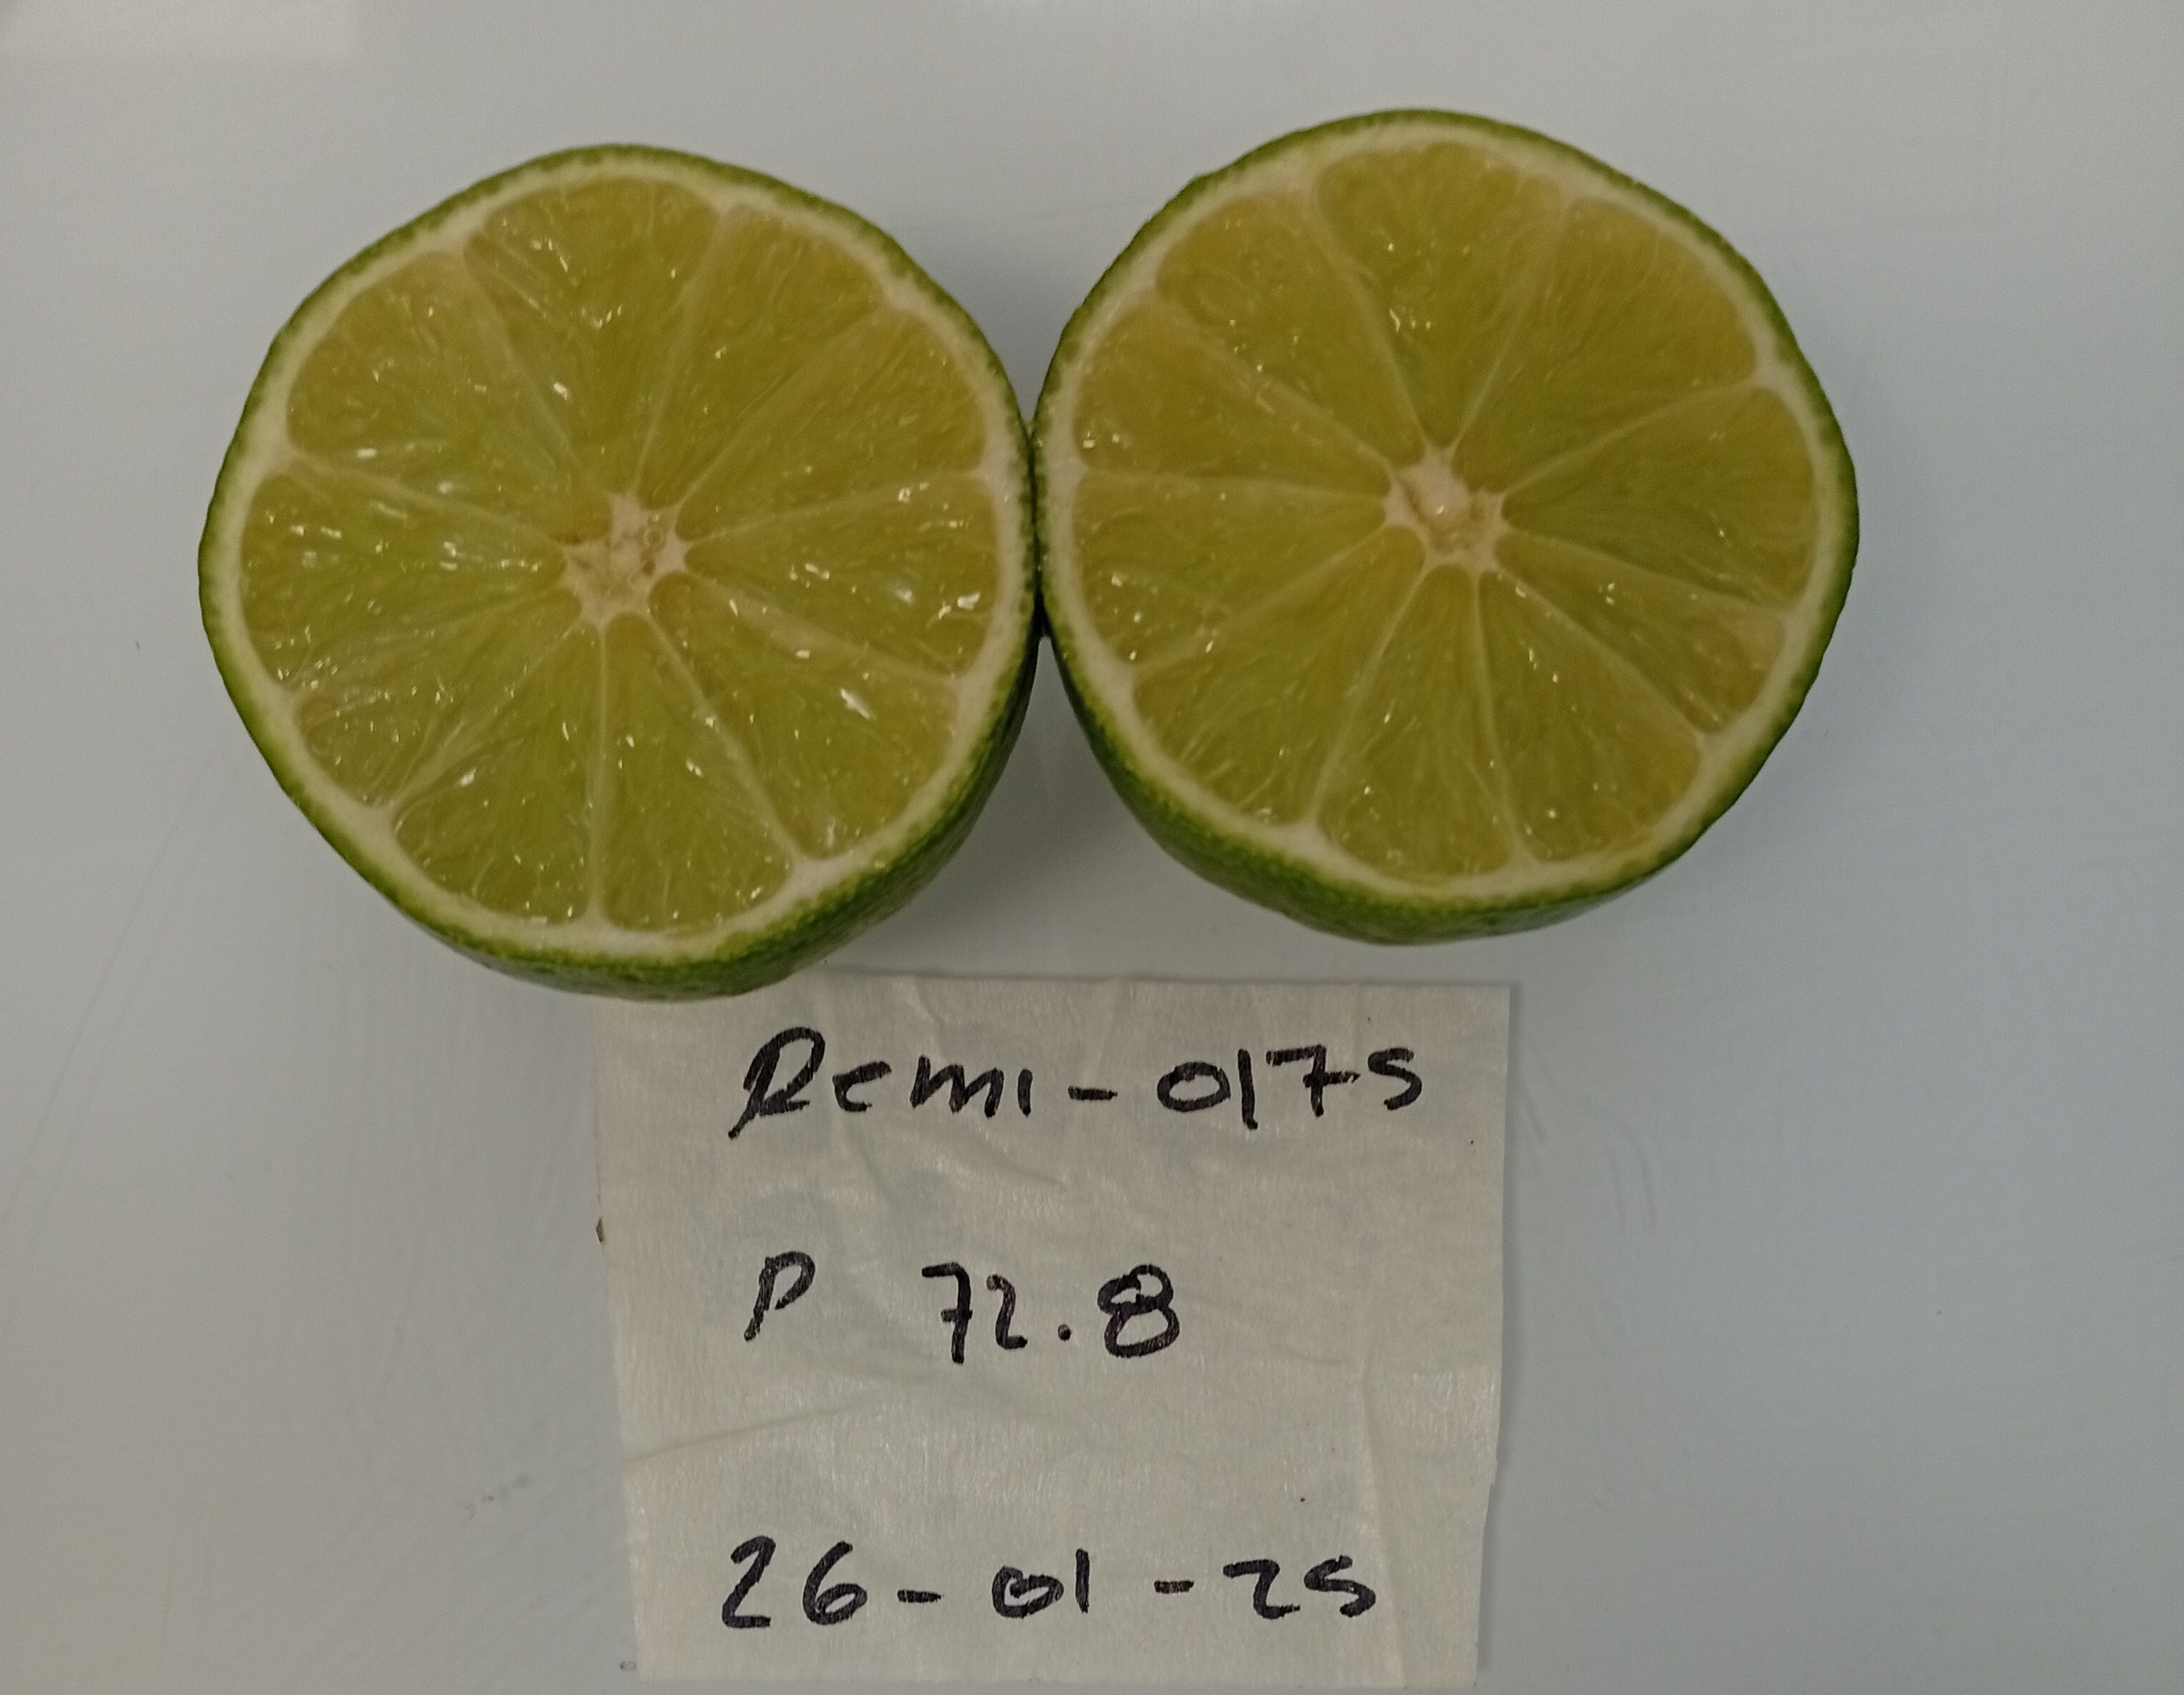 Remi-0175
P 72.8
26-01-25